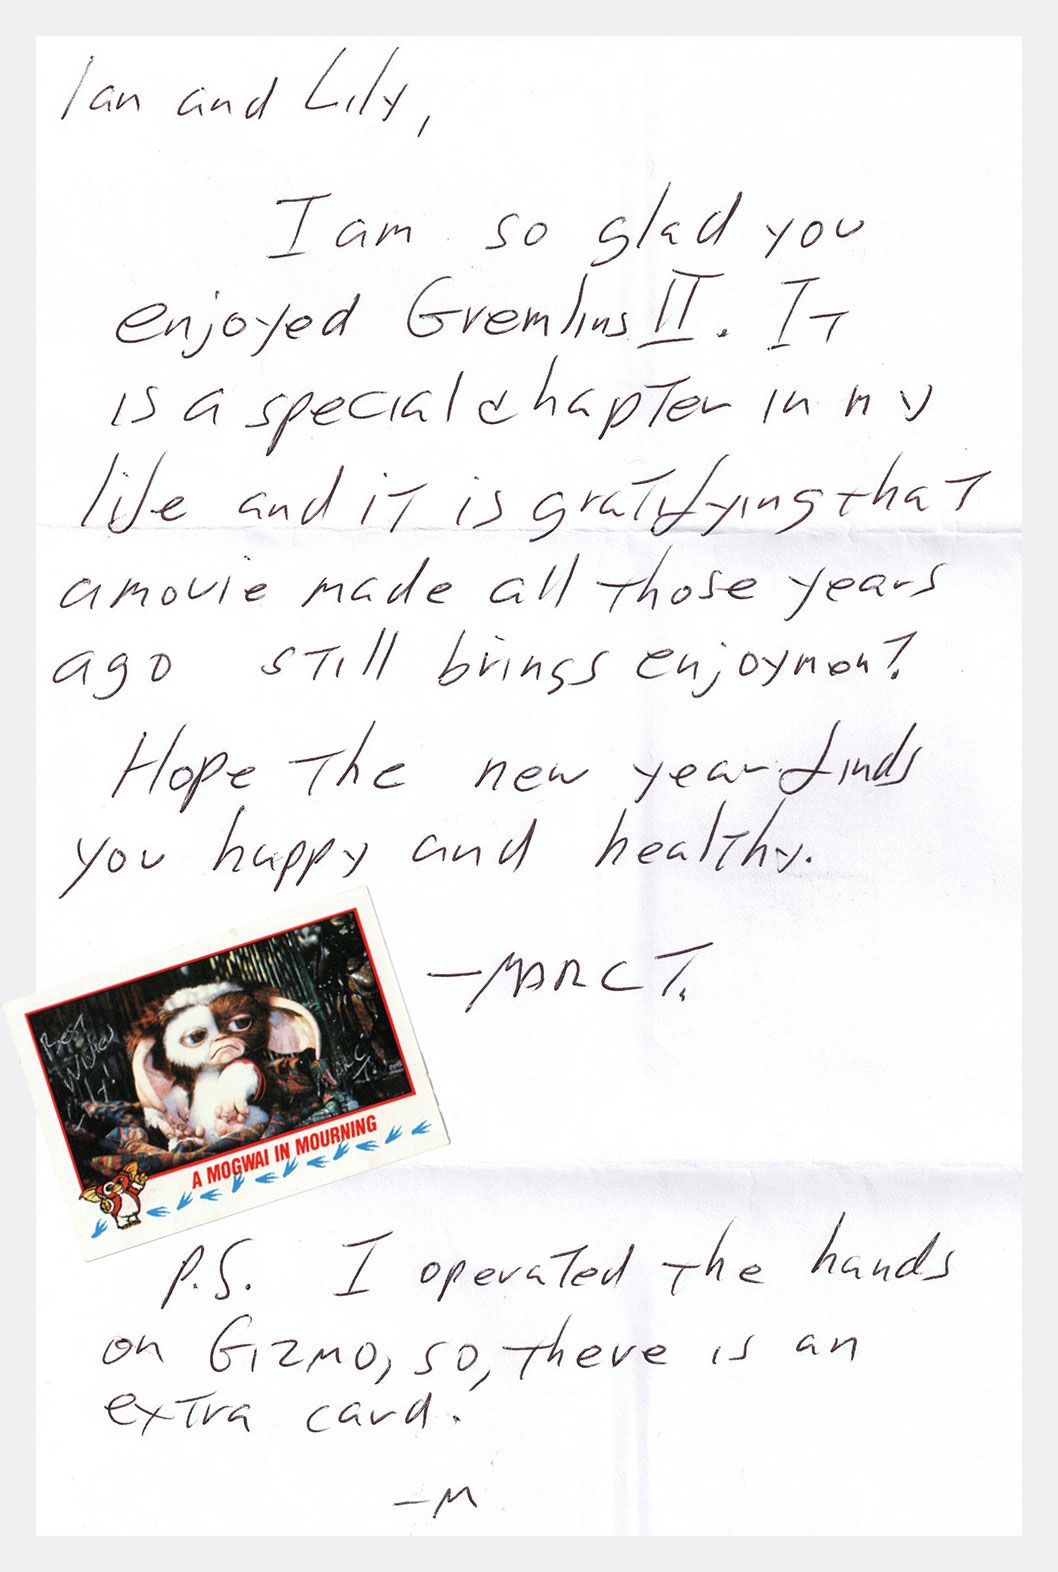 Ian and Lily,
I am so glad you
enjoyed Gremlins II. It
is a special chapter in my
life and it is gratifying that
a movie made all those years
ago still brings enjoyment.
Hope the new year finds
you happy and healthy.
—MARC T.
Best
Wishes
MARC
T.
A MOGWAI IN MOURNING
P.S. I operated the hands
on Gizmo, so, there is an
extra card.
—M